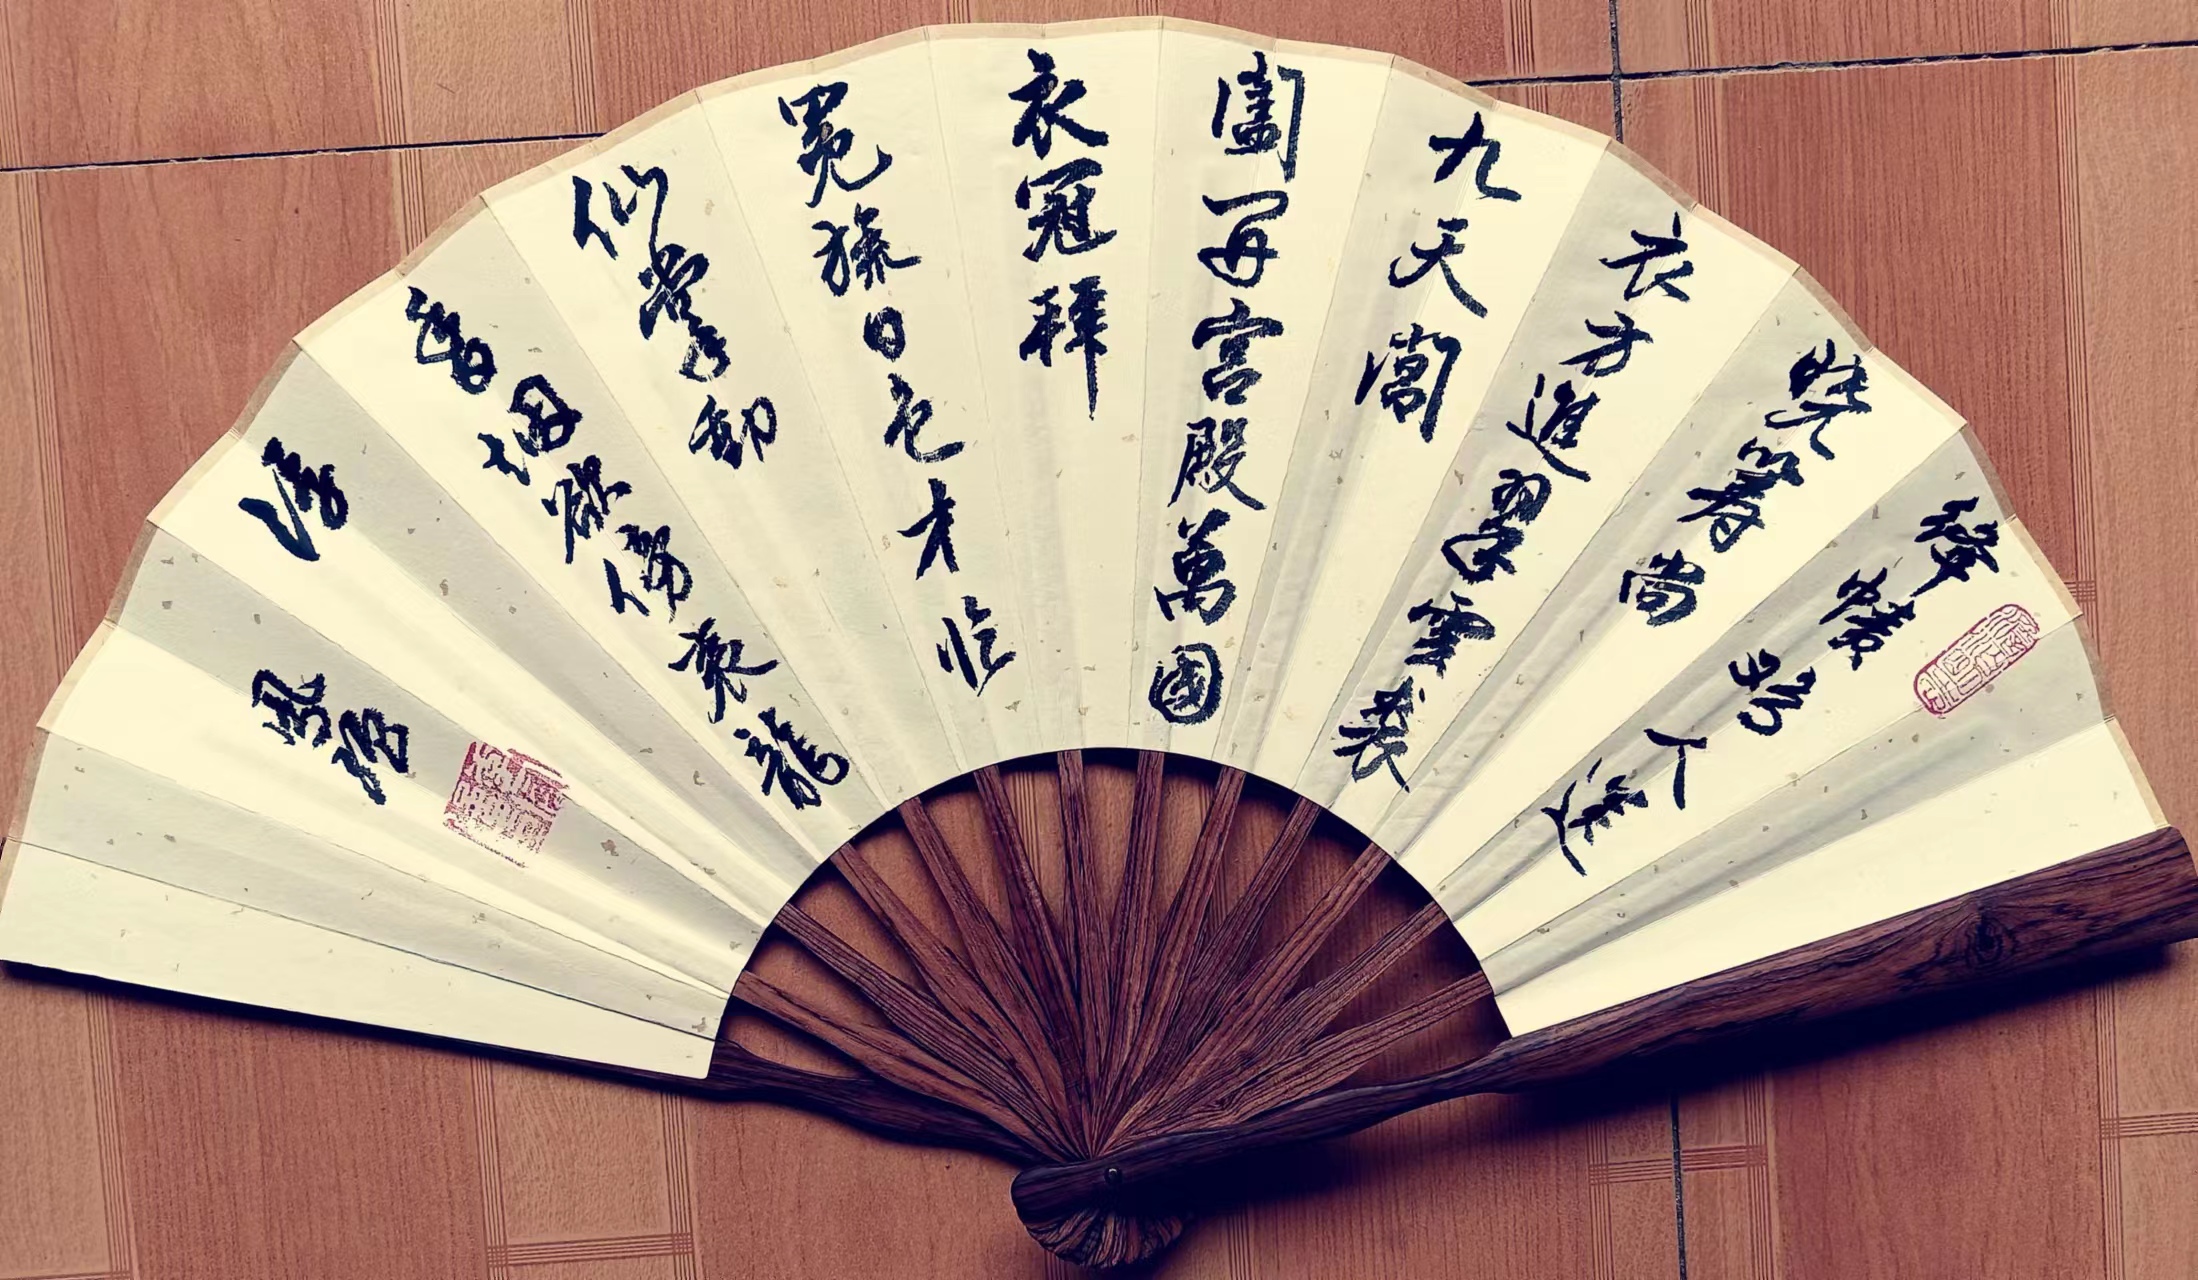 絳幘鷄人送
曉籌尚
衣方進翠雲裘
九天閶
闔開宮殿萬國
衣冠拜
冕旒日色才臨
仙掌動
香烟欲傍袞龍
浮